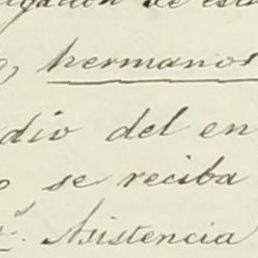 igacion de est
o, hermanos
dio del en
o se reciba
Asistencia